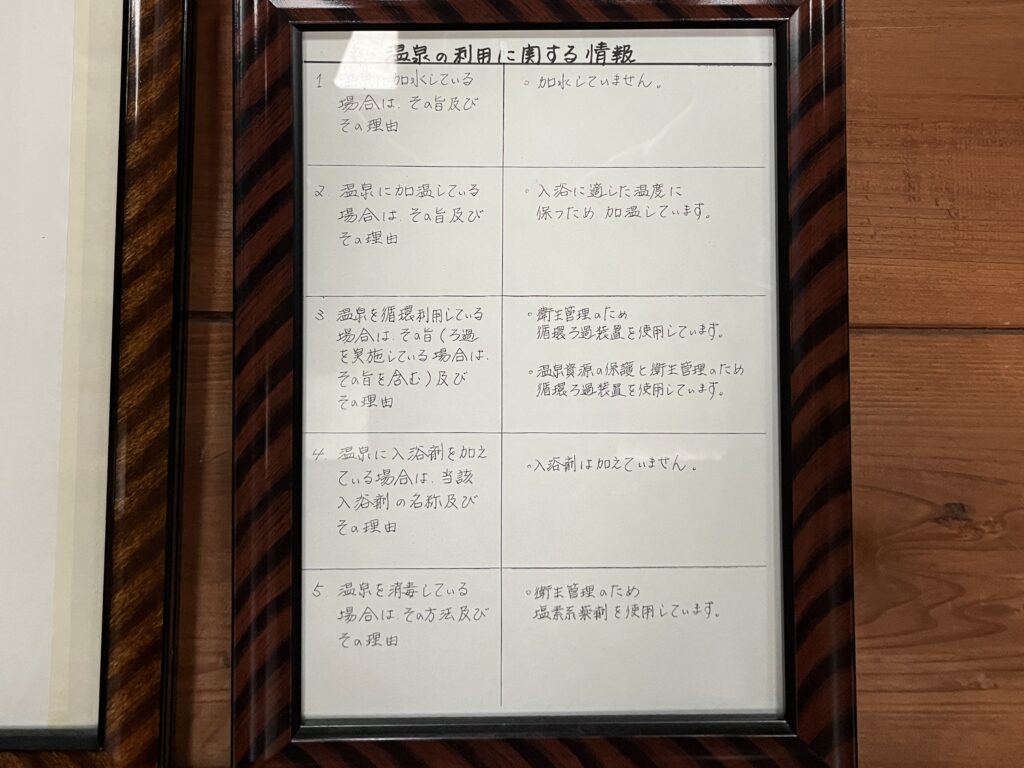 温泉の利用に関する情報
1 温泉に加水している
場合は、その旨及び
その理由
○ 加水していません。
2 温泉に加温している
場合は、その旨及び
その理由
○ 入浴に適した温度に
保つため、加温しています。
3 温泉を循環利用している
場合は、その旨(ろ過
を実施している場合は、
その旨を含む)及び
その理由
○ 衛生管理のため
循環ろ過装置を使用しています。
○ 温泉資源の保護と衛生管理のため
循環ろ過装置を使用しています。
4 温泉に入浴剤を加え
ている場合は、当該
入浴剤の名称及び
その理由
○入浴剤は加えていません。
5 温泉を消毒している
場合は、その方法及び
その理由
○衛生管理のため
塩素系薬剤を使用しています。